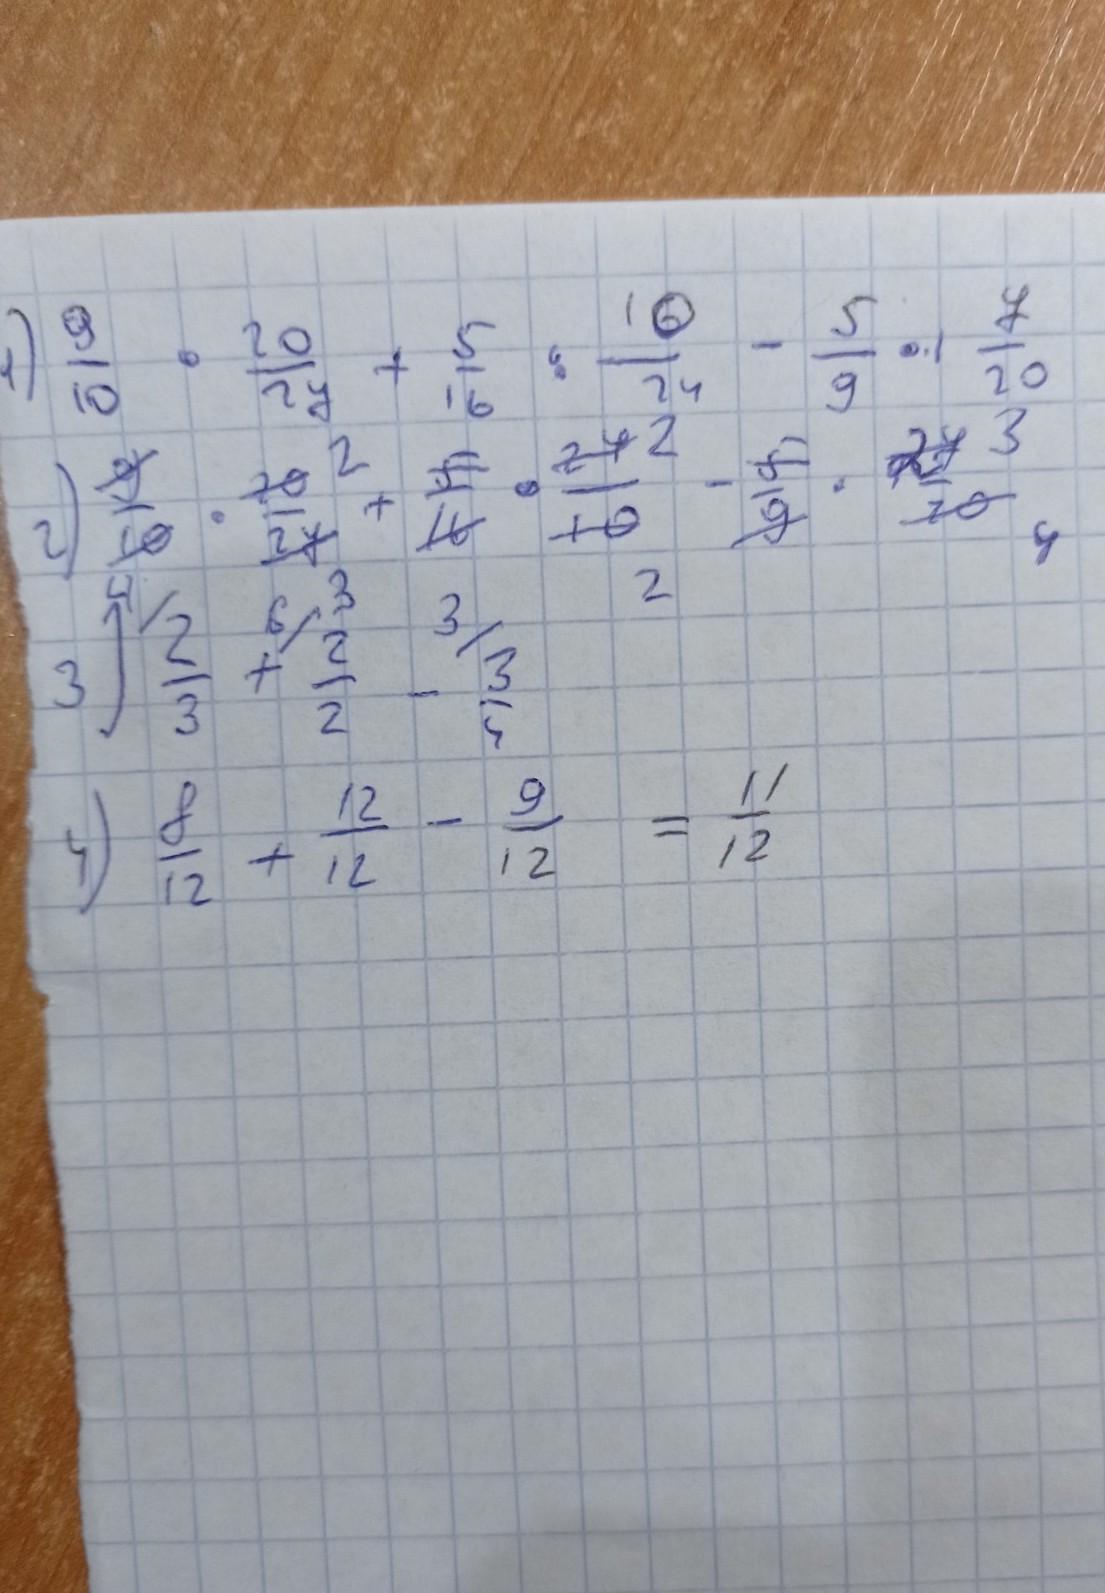 1) 9/10 · 20/27 + 5/16 : 10/24 - 5/9 : 7/20
2) 9/10 · 20/27 2 + 5/16 · 24/10 2 - 5/9 · 27/20 3
3 2 4
3) 4/ 2/3 + 6/ 2/2 - 3/ 3/4
4) 8/12 + 12/12 - 9/12 = 11/12